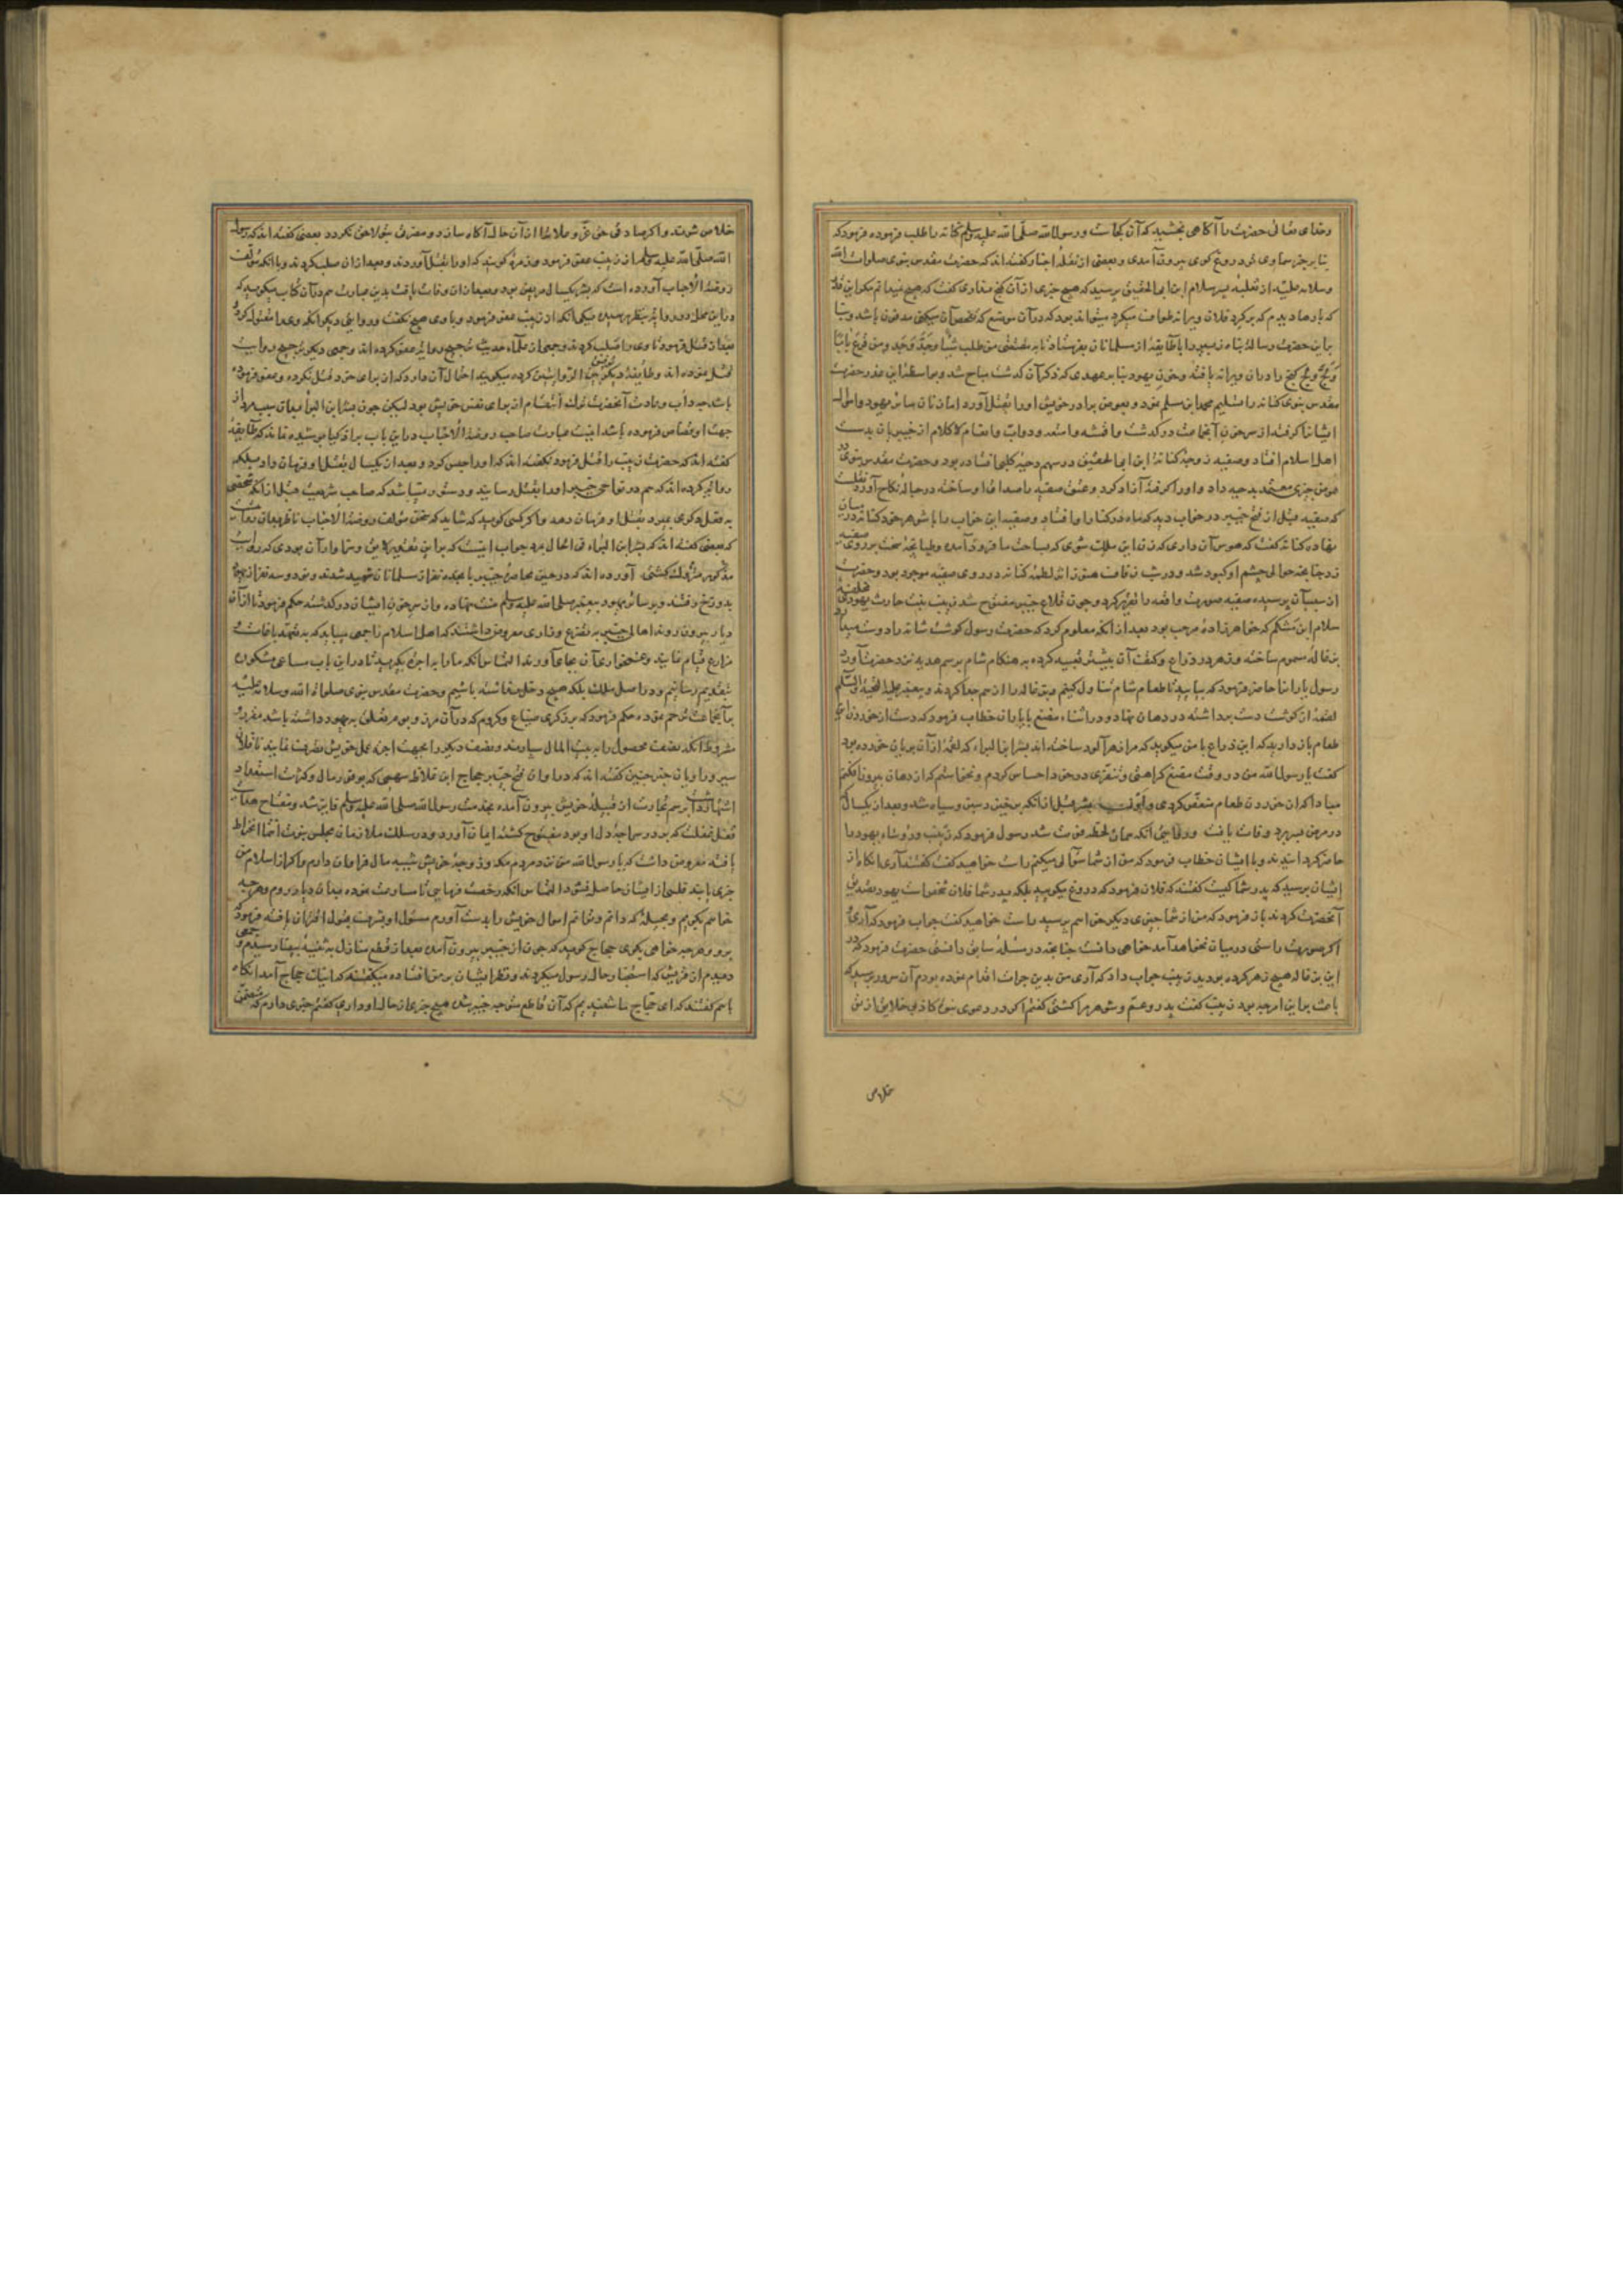 وخدای تعالی حضرت را آگاهی بخشید که آن کجاست و رسول الله صلی الله علیه وسلم کنانه را طلب فرموده فرمود که
بنابر خبر سماوی تو دروغ کوی بیرون آمدی و بعضی از نقله اخبار کفته اند که حضرت مقدس نبوی صلوات الله
وسلامه علیه از ثعلبه بن سلام ابن ابی الحقیق پرسید که هیچ خبری از آن کنج داری کفت که هیچ نمیدانم مکر این قدر
که بارها دیدم که بر کرد فلان ویرانه طواف میکرد میتواند بود که در آن موضع که تفحص آن میکنی مدفون باشد و بنا
براین حضرت رسالت پناه زبیر را با طایفه از مسلمانان بفرستاد تا به مقتضی من طلب شیئا وجد وجد ومن قرع بابا
ولج ولج کنج را در آن ویرانه یافته و خون یهود بنابر عهدی که ذکر آن کذشت مباح شد و بواسطه این غدر حضرت
مقدس نبوی کنانه را تسلیم محمد ابن مسلمه نمود و بعوض برادر خویش او را بقتل آورد
ایشانرا کرفته از سر خون آنجماعت درکذشت و اقمشه و امتعه و دواب و اغنام لا کلام از خیبریان بدست
اهل اسلام افتاد و صفیه زوجه کنانه ابن ابی الحقیق در سهم دحیه کلبی افتاده بود و حضرت مقدس نبوی
عوض چیزی معتمد بدحیه داد و او را کرفته آزاد کرد و عتق صفیه را صداق او ساخته در حباله نکاح آورد نقلست
که صفیه قبل از فتح خیبر در خواب دید که ماه در کنار او افتاد و صفیه این خواب را با شوهر خود کنانه در میان
نهاده کنانه کفت که هوس آن داری که زن این ملک شوی که بساحت ما فرود آمده و طپانچه سخت بر روی صفیه
زد چنانچه حوالی چشم او کبود شد و در شب زفاف هنوز اثر لطمه کنانه در روی صفیه موجود بود و حضرت
از سبب آن پرسیده صفیه صورت واقعه را تقریر کرد و چون قلاع خیبر مفتوح شد زینب بنت حارث یهودی
سلام ابن مشکم که خواهرزاده مرحب بود بعد از آنکه معلوم کرد که حضرت رسول کوشت شانه را دوست میدارد
بزغاله مسموم ساخته و زهر در ذراع و کتف آن بیشتر تعبیه کرده به هنکام شام برسم هدیه نزد حضرت آورد
رسول یارانرا حاضر فرمود که بیایید تا طعام شام تناول کنیم و بزغاله را از هم جدا کردند و پیغمبر علیه التحیة والسلم
لقمه از کوشت دست برداشته در دهان نهاد و در اثناء مضغ یارانرا خطاب فرمود که دست از خوردن این
طعام باز دارید که این ذراع با من میکوید که مرا زهرآلود ساخته اند بشر ابن البراء که لقمه از آن بریان خورده بود
کفت یا رسول الله من در وقت مضغ کراهتی و تنفری در خود احساس کردم و نخواستم که از دهان بیرون افکنم
مبادا که از خوردن طعام متنفر کردی و بشر قبل از آنکه برخیزد سبز و سیاه شد و بعد از یکسال که
در مرض میبرد وفات یافت و روایتی آنکه همان لحظه فوت شد رسول فرمود که زینب و رؤساء یهود را
حاضر کردانیدند و با ایشان خطاب فرمود که من از شما سؤالی میکنم راست خواهید کفت کفتند آری آنکاه از
ایشان پرسید که پدر شما کیست کفتند که فلان فرمود که دروغ میکویید بلکه پدر شما فلان شخص است یهود تصدیق
آنحضرت کردند باز فرمود که من از شما چیزی دیکر خواهم پرسید راست خواهید کفت جواب فرمود که آری
اکر صورت راستی در میان نخواهد آمد خواهی دانست چنانچه در مسئله سابق دانستی حضرت فرمود که در
این بزغاله هیچ زهر کرده بودید زینب جواب داد که آری من بدین جرات اقدام نموده بودم آن سرور پرسید که
باعث براین امر چه بود زینب کفت پدر و عم و شوهر مرا کشتی کفتم اکر در دعوی نبوت کاذبی خلایق از تو
خلاص
خلاص شوند و اکر صادقی حق عز و علا ترا از آن حال آکاه سازد و مضرتی بتو لاحق نکردد بعضی کفته اند که رسول
الله صلی الله علیه وسلم از زینب عفو فرمود و زمره کویند که او را بقتل آوردند و بعد از آن صلب کردند و با آنکه مؤلف
روضة الاحباب آورده است که بشر یکسال مریض بود و بعد از آن وفات یافت بدین عبارت هم در آن کتاب میکوید که
در این محل دو روایت بنظر رسیده یکی آنکه از زینب عفو فرمود و با وی هیچ نکفت و روایتی دیکر آنکه وی را مقتول کرد
بعد از قتل فرمود تا وی را صلب کردند و جمعی از علماء حدیث ترجیح روایت عفو کرده اند و جمعی دیکر ترجیح روایت
قتل نموده اند و طایفه دیکر توفیق بین الروایتین کرده میکویند احتمال آن دارد که از برای خود قتل نکرده و عفو فرموده
باشد چه دأب و عادت آنحضرت ترک انتقام از برای نفس خویش بود لیکن چون بشر ابن البراء بدان سبب مرد از
جهت او قصاص فرموده باشد اینست عبارت صاحب روضة الاحباب در این باب بر اذکیا پوشیده نماند که طایفه
کفته اند که حضرت زینب را قتل فرمود نکفته اند که او را حبس کرد و بعد از یکسال بقتل او فرمان داد بلکه
روایت کرده اند که هم در نواحی خیبر او را بقتل رسانید و دستور نمیباشد که صاحب شریعت قبل از آنکه شخصی
به فعل دکری بمیرد بقتل او فرمان دهد و اکر کسی کوید که شاید که سخن مؤلف روضة الاحباب ناظر بدان روایت
که بعضی کفته اند که بشر ابن البراء فی الحال مرد جواب اینست که براین تقدیر لایق و سزاوار آن بودی که روایت
مذکور متروک نکشتی آورده اند که در حین محاصره خیبر پانزده نفر از مسلمانان شهید شدند و نود و سه نفر از یهود
بدوزخ رفتند و بر سایر یهود پیغمبر صلی الله علیه وسلم منت نهاده و از سر خون ایشان درکذشته حکم فرمود تا از آن
دیار بیرون روند اهالی خیبر به تضرع و زاری معروض داشتند که اهل اسلام را جمعی میباید که به تعهد باغات و
مزارع قیام نمایند و غمخواری آن بجای آورند التماس آنکه ما را به اجرت بکیرید تا در این باب مساعی مشکور
بتقدیم رسانیم و در اصل ملک بلکه هیچ دخل نداشته باشیم و حضرت مقدس نبوی صلوات الله وسلامه علیه
بر آنجماعت ترحم نموده حکم فرمود که بر ذکری ضیاع و کروم که در آن مرز و بوم تعلق به یهود داشته باشد مقرر
مشروط آنکه نصف محصول را به بیت المال سپارند و نصف دیکر را بجهت اجرت عمل خویش تصرف نمایند ناقلان
سیر و راویان خبر چنین کفته اند که در اوان فتح خیبر حجاج ابن علاط سهمی که بوفور مال و کثرت استعداد
اشتهار داشت برسم تجارت از قبیله خویش بیرون آمده بخدمت رسول الله صلی الله علیه وسلم فایز شد و مفتاح هدایت
قفل غفلت که بر در سراچه دل او بود مفتوح کشته ایمان آورد و در سلک ملازمان مجلس نبوت انتما انخراط
یافته معروض داشت که یا رسول الله من نزد مردم مکه و زوجه خویش شیبه مال فراوان دارم و اکر از اسلام من
خبری یابند فلسی از ایشان حاصل نشود التماس آنکه رخصت فرمایی تا مسارعت نموده بدان دیار روم و هر چه
خواهم بکویم و بحیله که دانم و توانم اموال خویش را بدست آورم مسئول او بشرف قبول اقتران یافته فرمود که
برو و هر چه خواهی بکوی حجاج کوید که چون از خیبر بیرون آمدم بعد از قطع منازل به ثنیه بیضا رسیدم و جمعی
دیدم از قریش که استفسار حال رسول میکردند و نظر ایشان بر من افتاده میکفتند که اینک حجاج آمد آنکاه
باهم کفتند که ای حجاج ما شنیدیم که آن قاطع متوجه خیبر شده هیچ خبری از حال او داری کفتم خبری دارم که